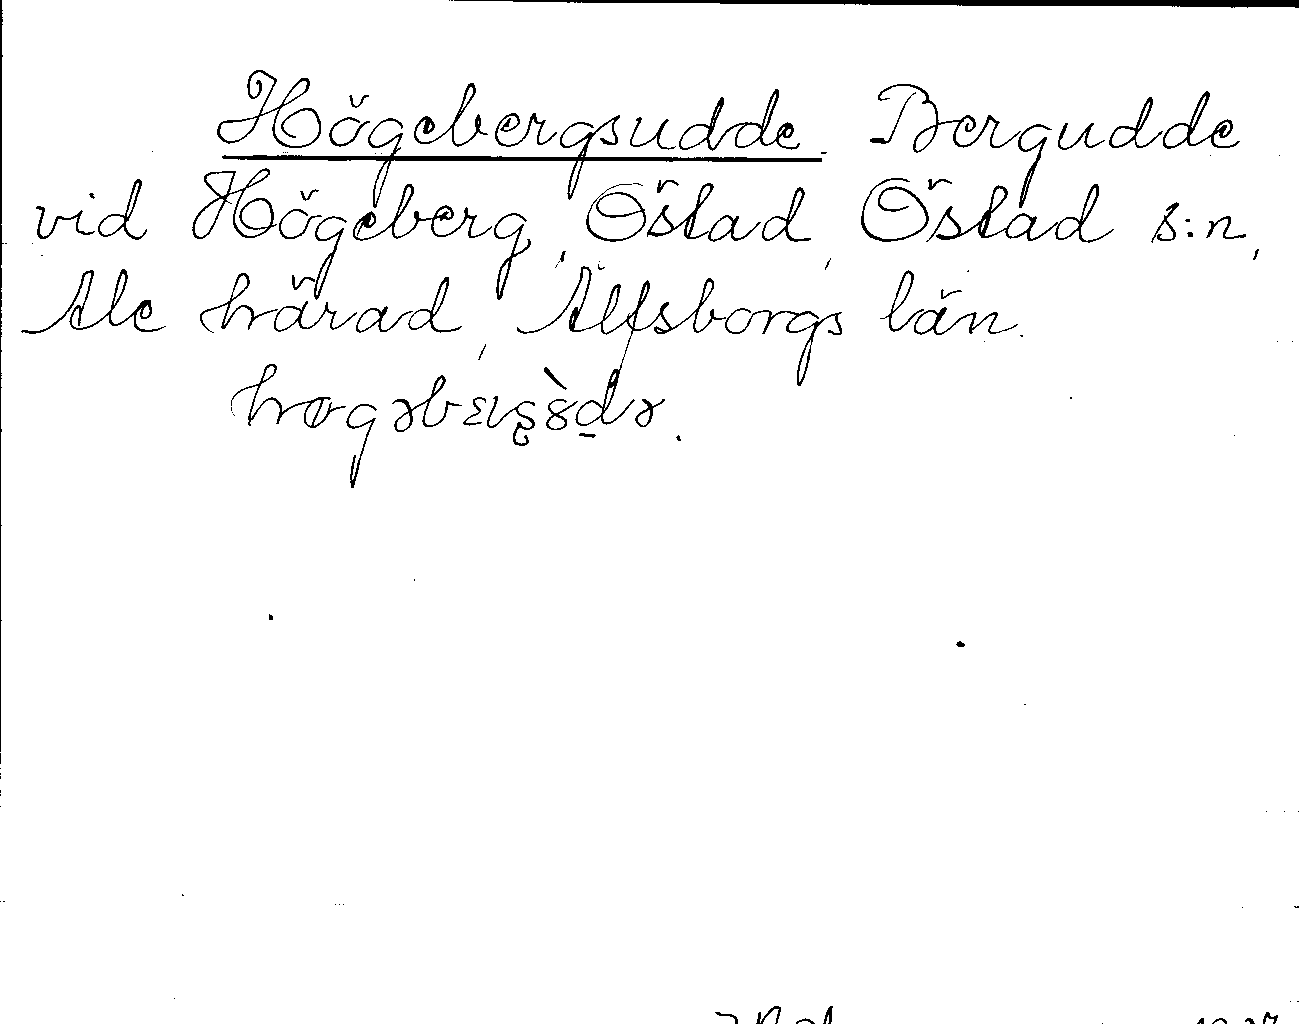 Högebergsudde. Bergudde
vid Högeberg, Östad, Östad s:n,
Ale härad, Älfsborgs län.